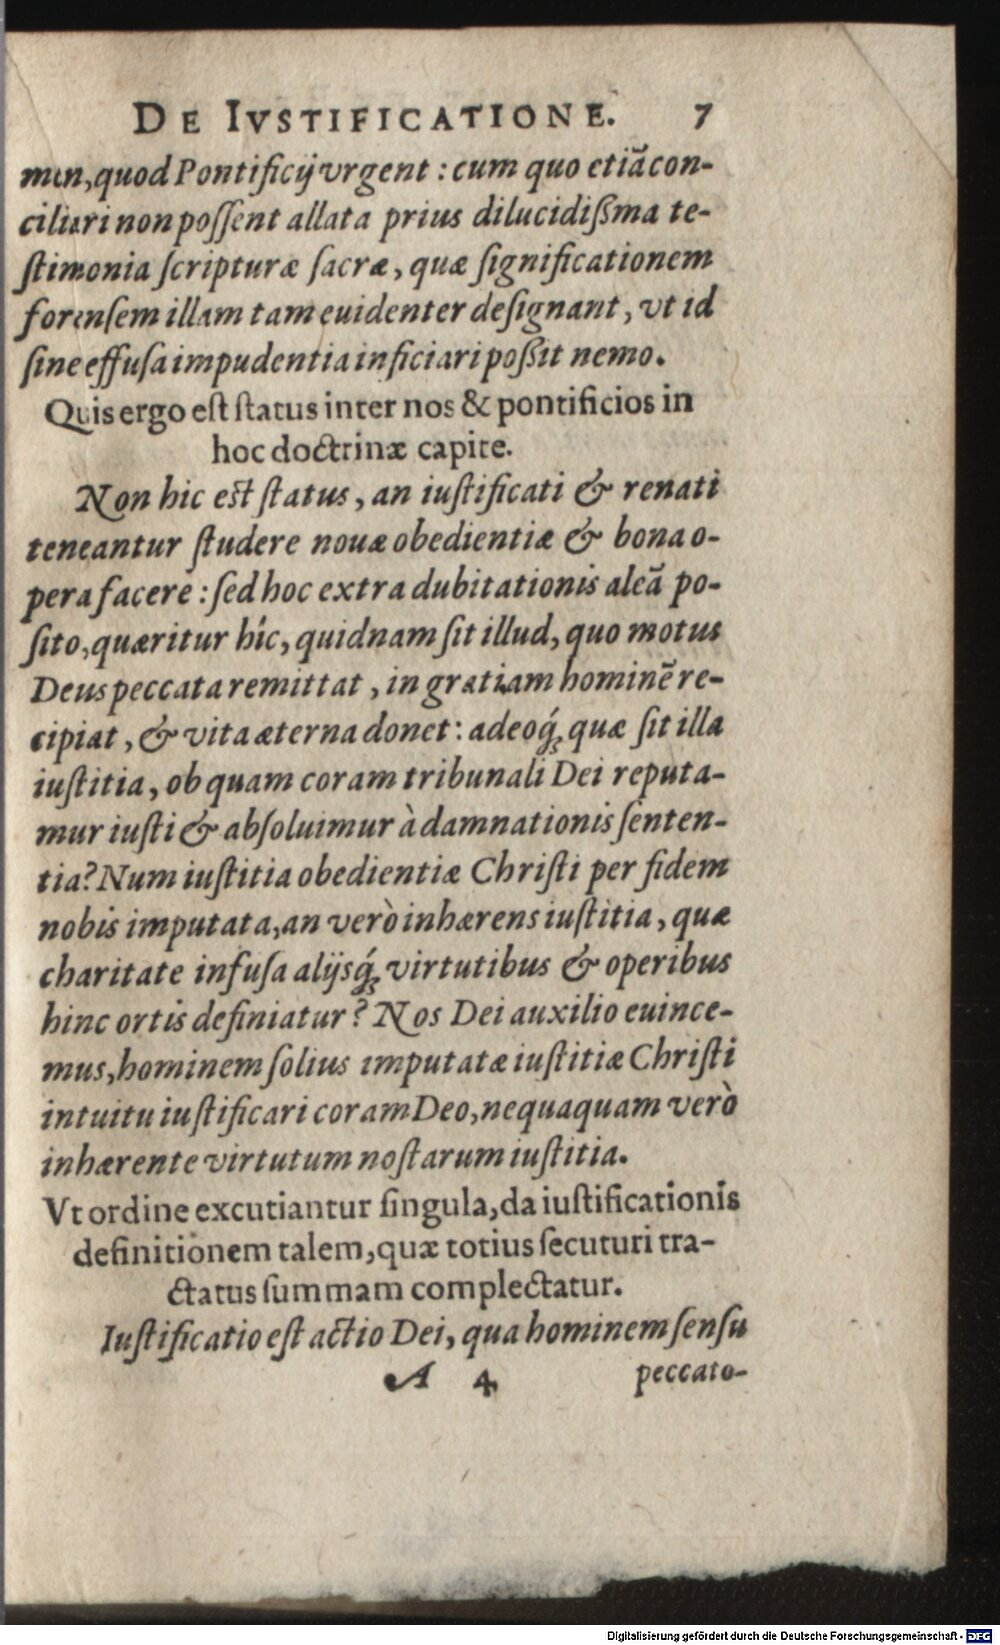 DE IVSTIFICATIONE. 7
men, quod Pontificij vrgent : cum quo etiã con-
ciliari non poſſent allata prius dilucidißma te-
ſtimonia ſcripturæ ſacræ, quæ ſignificationem
forenſem illam tam euidenter deſignant, vt id
ſine effuſa impudentia inficiari poßit nemo.
Quis ergo eſt ſtatus inter nos & pontificios in
hoc doctrinæ capite.
Non hic eſt ſtatus, an iuſtificati & renati
teneantur ſtudere nouæ obedientiæ & bona o-
pera facere : ſed hoc extra dubitationis aleã po-
ſito, quæritur hîc, quidnam ſit illud, quo motus
Deus peccata remittat, in gratiam hominẽ re-
cipiat, & vita æterna donet : adeoq́; quæ ſit illa
iuſtitia, ob quam coram tribunali Dei reputa-
mur iuſti & abſoluimur à damnationis ſenten-
tia? Num iuſtitia obedientiæ Chriſti per fidem
nobis imputata, an verò inhærens iuſtitia, quæ
charitate infuſa alijsq́; virtutibus & operibus
hinc ortis definiatur? Nos Dei auxilio euince-
mus, hominem ſolius imputatæ iuſtitiæ Chriſti
intuitu iuſtificari coram Deo, nequaquam verò
inhærente virtutum noſtarum iuſtitia.
Vt ordine excutiantur ſingula, da iuſtificationis
definitionem talem, quæ totius ſecuturi tra-
ctatus ſummam complectatur.
Iuſtificatio eſt actio Dei, qua hominem ſenſu
A 4 peccato-
Digitalisierung gefördert durch die Deutsche Forschungsgemeinschaft - DFG